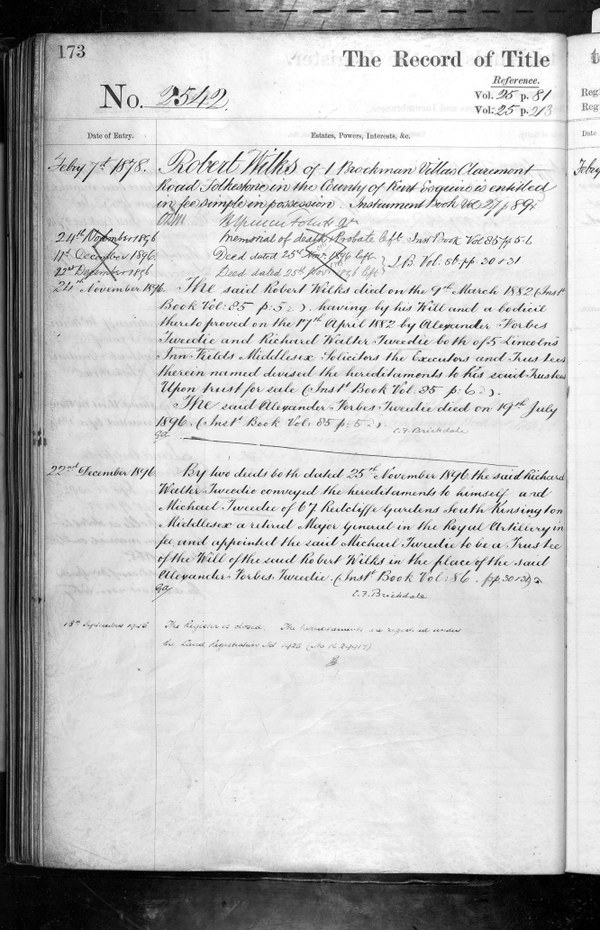 173
The Record of Title
Reference.
No. 2542.
Vol. 25 p. 81
Vol. 25 p. 213
Date of Entry.
Estates, Powers, Interests, &c.
Febry 7th 1878.
Robert Wilks of 1 Brockman Villas Claremont
Road Folkestone in the County of Kent Esquire is entitled
in fee simple in possession. Instrument Book Vol 27 p 89
24th November 1896
Memorial of death & Probate left. Inst Book Vol 85 p 5-6
11th December 1896
Deed dated 25th Nov. 1896 left
I.B. Vol. 86 pp 30 & 31
22nd December 1896
Deed dated 25th Nov. 1896 left
24th November 1896.
The said Robert Wilks died on the 9th March 1882 (Inst.
Book Vol: 85 p: 5) having by his Will and a bodicil
thereto proved on the 17th April 1882 by Alexander Forbes
Tweedie and Richard Walter Tweedie both of 5 Lincoln's
Inn Fields Middlesex Solicitors the Executors and Trustees
therein named devised the hereditaments to his said Trustees
Upon trust for sale (Inst. Book Vol: 85 p: 6).
The said Alexander Forbes Tweedie died on 19th July
1896. (Inst. Book Vol: 85 p: 5)
C.F. Brickdale
22nd December 1896
By two deeds both dated 25th November 1896 the said Richard
Walter Tweedie conveyed the hereditaments to himself and
Michael Tweedie of 67 Redcliffe Gardens South Kensington
Middlesex a retired Major General in the Royal Artillery in
fee and appointed the said Michael Tweedie to be a Trustee
of the Will of the said Robert Wilks in the place of the said
Alexander Forbes Tweedie. (Inst. Book Vol: 86. pp 30 & 31)
C.F. Brickdale
18th September
The Register is closed. The hereditaments are registered under
the Land Registration Act
Reg
Reg
Date
Febry